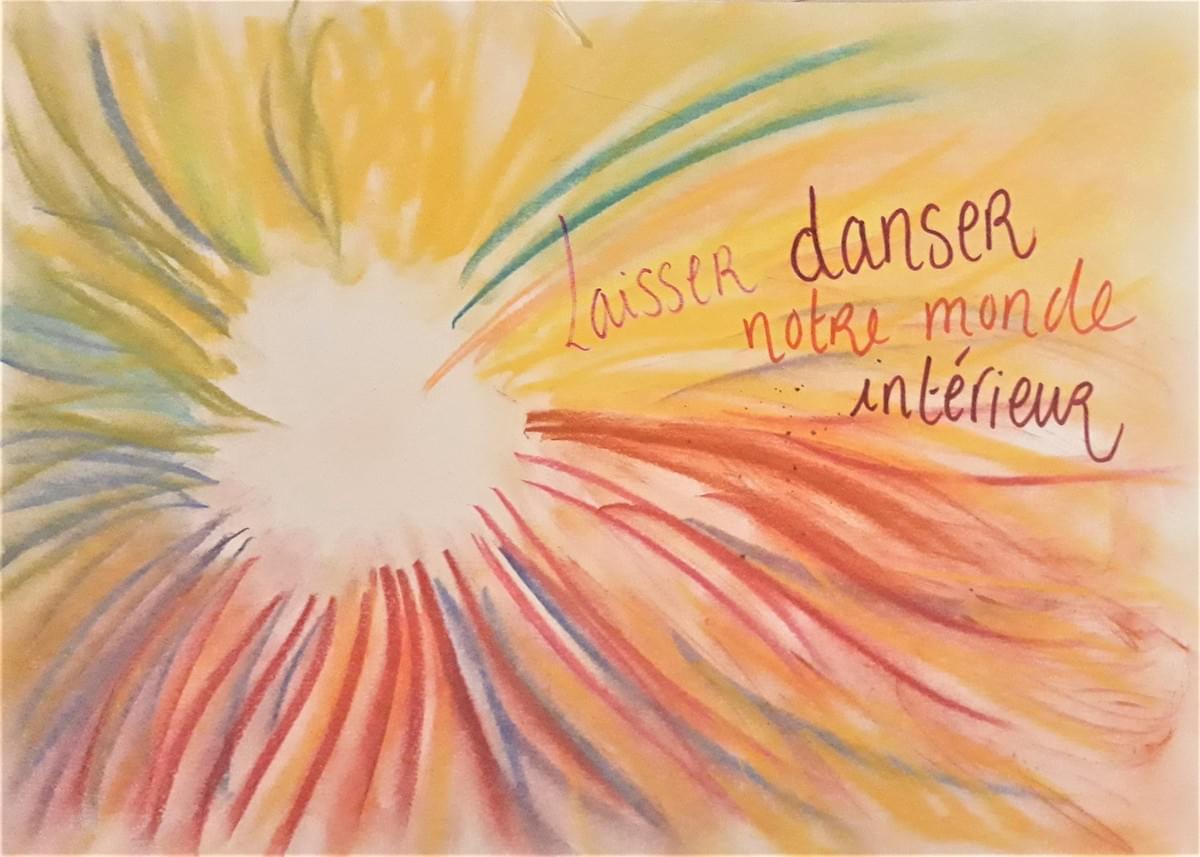 Laisser danser
notre monde
intérieur